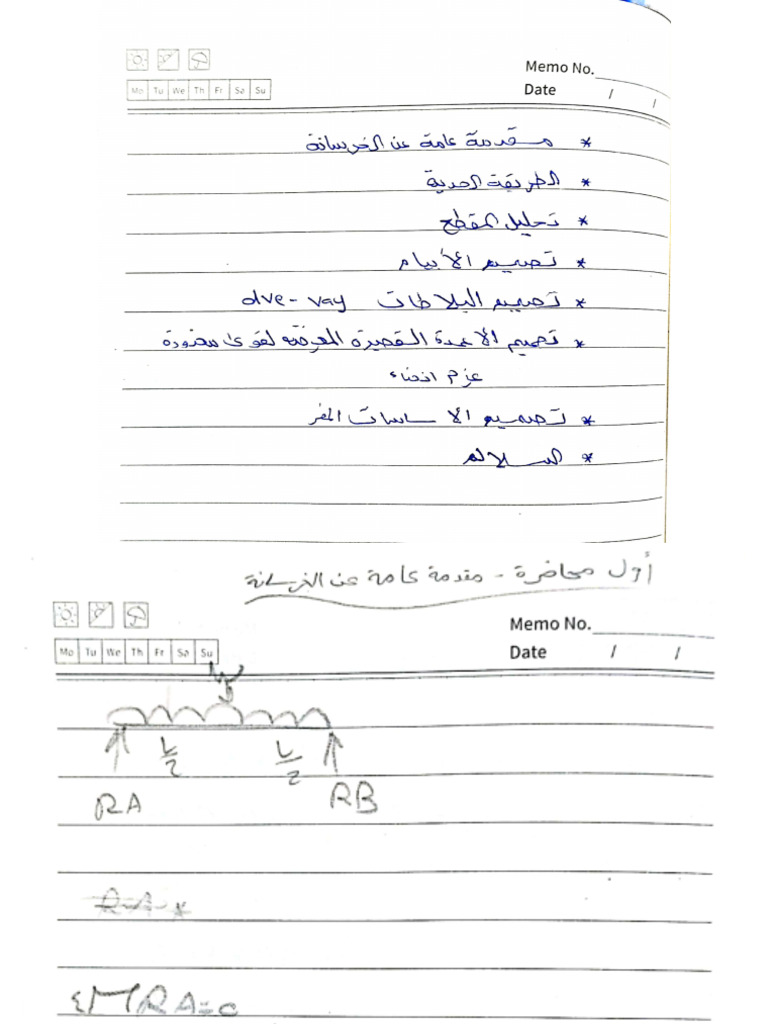 Memo No.
Mo Tu We Th Fr Sa Su
Date / /
* مقدمة عامة عن الخرسانة
* الطريقة الحدية
* تحليل المقطع
* تصميم الأبيام
* تصميم البلاطات dve-vay
* تصميم الاعمدة القصيرة المعرضه لقوى محورية
عزم انحناء
* تصميم الاساسات
* السلالم
أول محاضرة - مقدمة عامة عن الخرسانة
Memo No.
Mo Tu We Th Fr Sa Su
Date / /
L/2 L/2
RA RB
RA *
ΣMRA=0